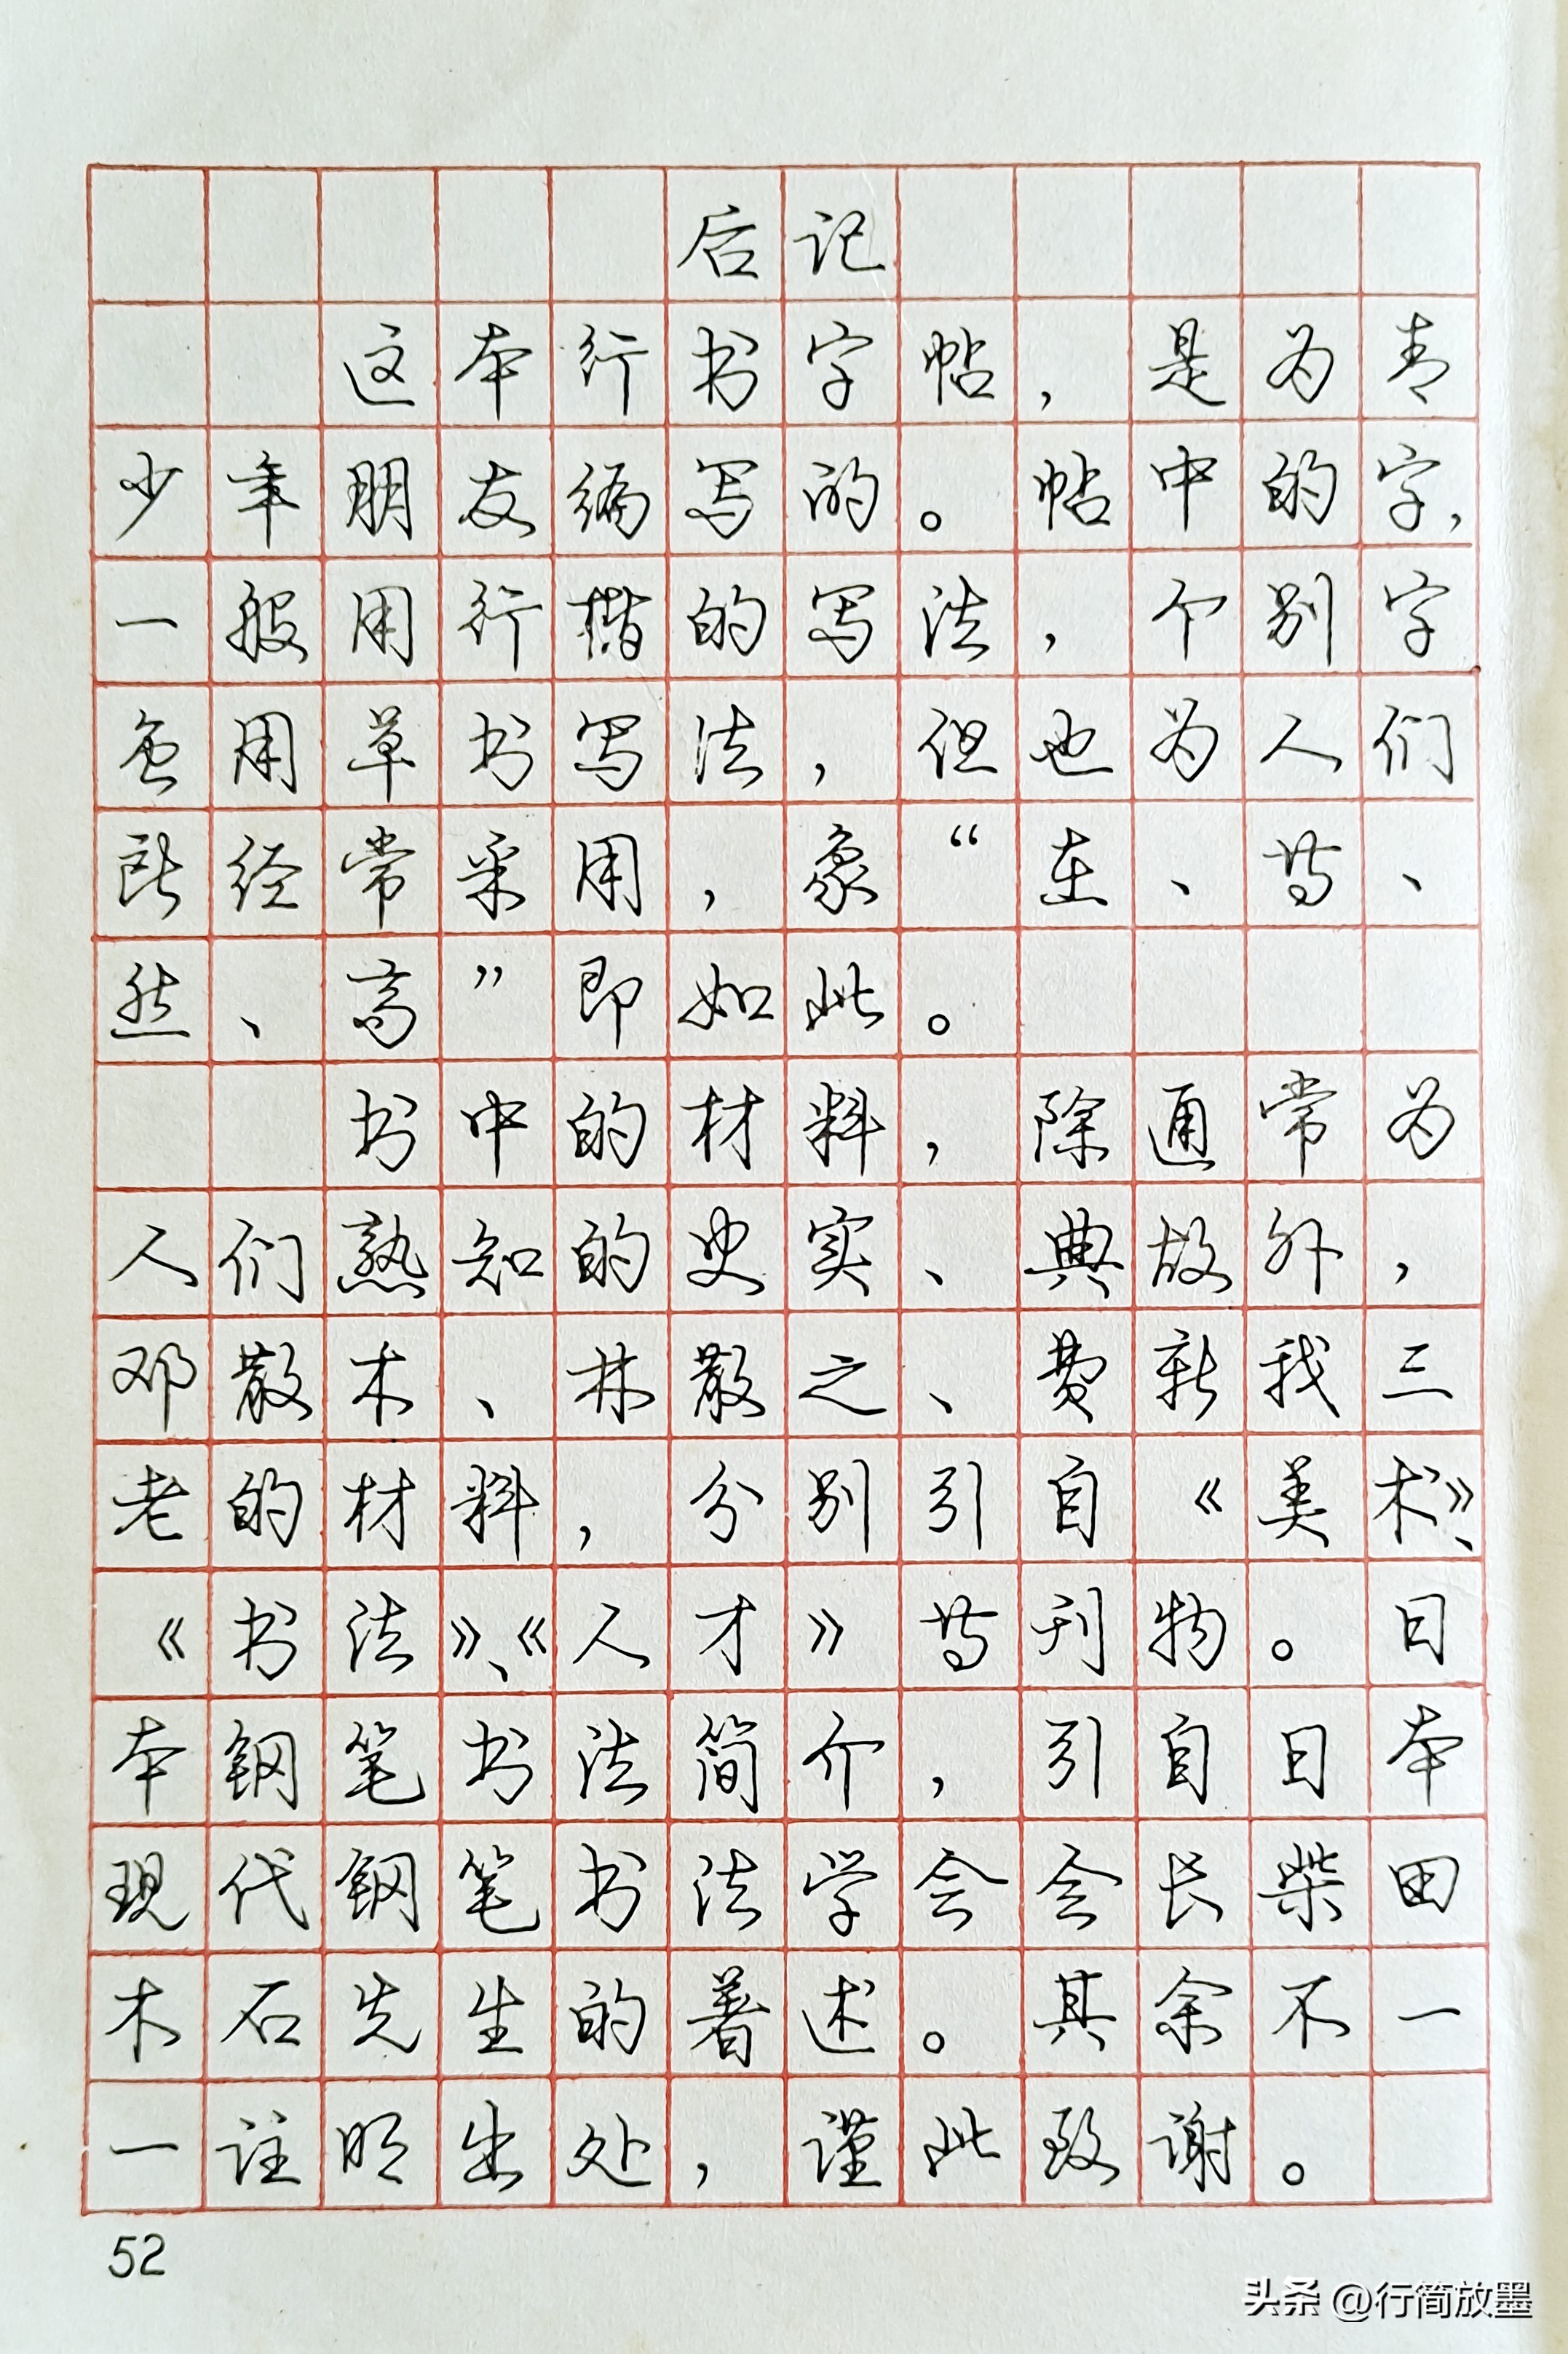 后记
这本行书字帖，是为青
少年朋友编写的。帖中的字，
一般用行楷的写法，个别字
虽用草书写法，但也为人们
所经常采用，象“在、等、
然、高”即如此。
书中的材料，除通常为
人们熟知的史实、典故外，
邓散木、林散之、费新我三
老的材料，分别引自《美术》、
《书法》、《人才》等刊物。日
本钢笔书法简介，引自日本
现代钢笔书法学会会长柴田
木石先生的著述。其余不一
一註明出处，谨此致谢。
52
头条 @行简放墨